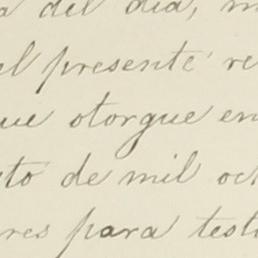 a del dia, m
el presente re
ue otorgue en
to de mil oc
res para test